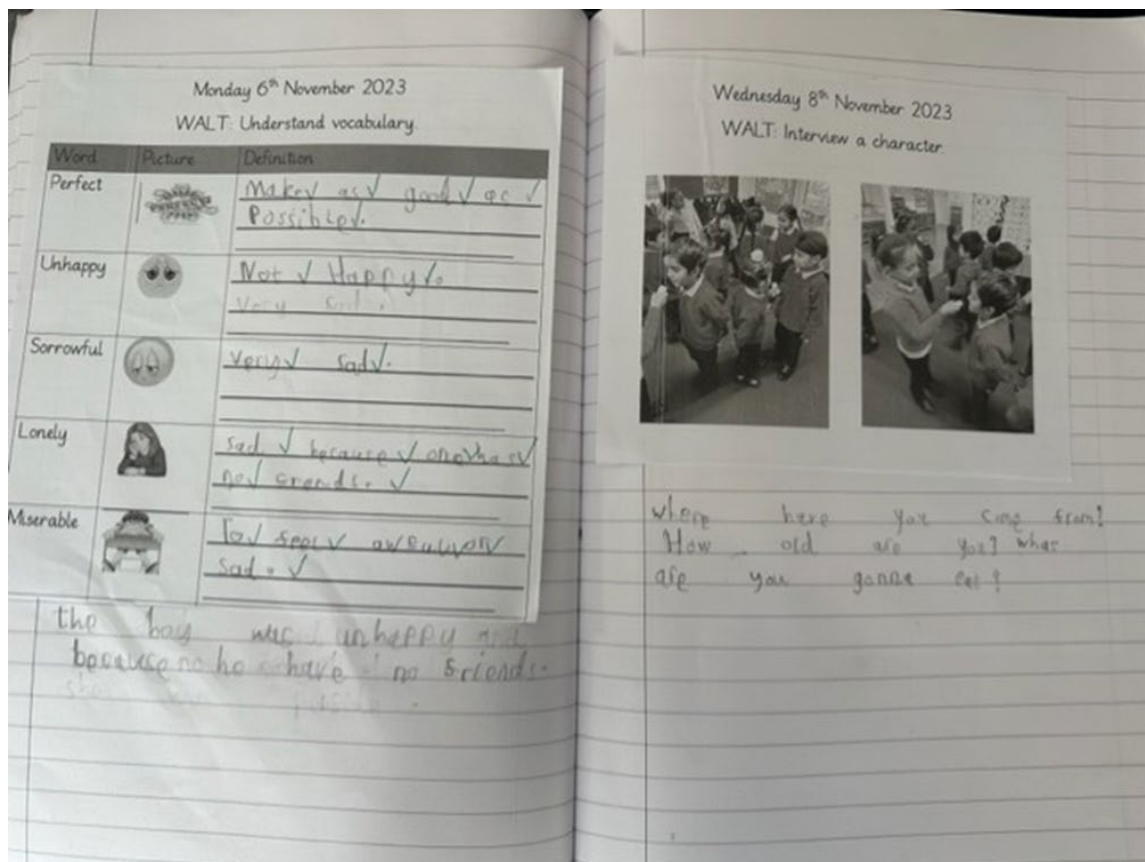 Monday 6th November 2023
WALT: Understand vocabulary.
Word Picture Definition
Perfect
Make as good as
Possible.
Unhappy
Not Happy.
very sad.
Sorrowful
very sad.
Lonely
sad because one has
no srends.
Miserable
To feel or
sad.
the boy unhappy and
because he have no sriends.
Wednesday 8th November 2023
WALT: Interview a character.
where here you come from?
How old are you? what
are you gonna eat?